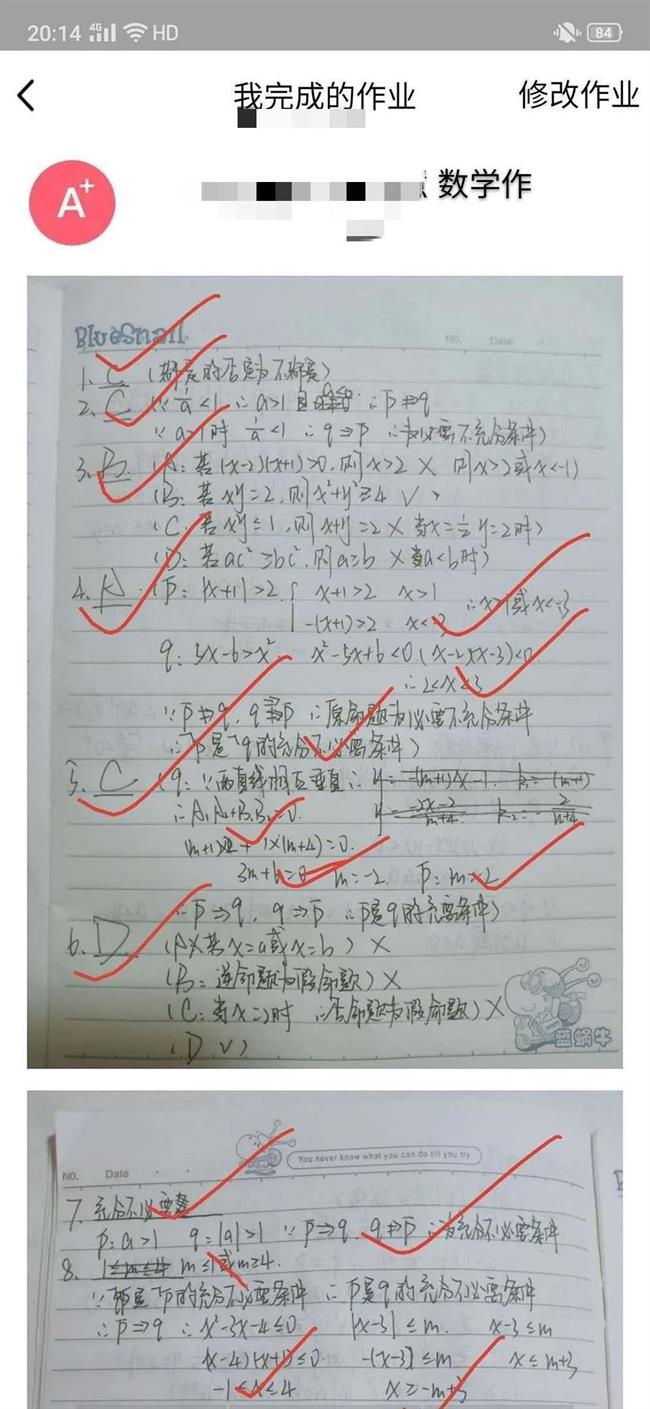 20:14 4G HD 84
我完成的作业 修改作业
A+
数学作
BlueSnail
No. Date
1. C (都是的否定为不都是)
2. C (∵ 1/a < 1 ∴ a>1 ∴ p⇏q
∵ a>1时 1/a <1 ∴ q⇒p ∴为必要不充分条件)
3. B (A: 若(x-2)(x+1)>0, 则x>2 × 则x>2或x<-1)
(B: 若xy=2, 则x²+y²≥4 √)
(C: 若xy≤1, 则x+y=2 × 当x=½ y=2时)
(D: 若ac²≥bc², 则a≥b × 当a<b时)
4. A (p: |x+1|>2, { x+1>2 x>1 ∴x>1或x<-3
-(x+1)>2 x<-3
q: 5x-6>x² x²-5x+6<0 (x-2)(x-3)<0
∴2<x<3
∵ p⇏q, q⇒p ∴原命题为必要不充分条件
∴ ¬p是¬q的充分不必要条件)
5. C (q: ∵两直线相互垂直 ∴
∴A₁A₂+B₁B₂=0.
(m+1)×2+1×(m+4)=0.
3m+6=0 m=-2. p: m=-2
∴ p⇒q, q⇒p ∴p是q的充要条件)
6. D (A×若x=a或x=b) ×
(B: 逆命题为假命题) ×
(C: 当x=2时 ∴否命题为假命题) ×
(D √)
蓝蜗牛
You never know what you can do till you try
No. Date
7. 充分不必要
p: a>1 q: |a|>1 ∵ p⇒q, q⇏p ∴为充分不必要条件
8. 1≤m≤4 m≤1或m≥4.
∵ 是¬p的充分不必要条件 ∴ p是q的充分不必要条件
∴ p⇒q ∴ x²-3x-4≤0 |x-3|≤m. x-3≤m
(x-4)(x+1)≤0 -(x-3)≤m x≤m+3
-1≤x≤4 x≥-m+3